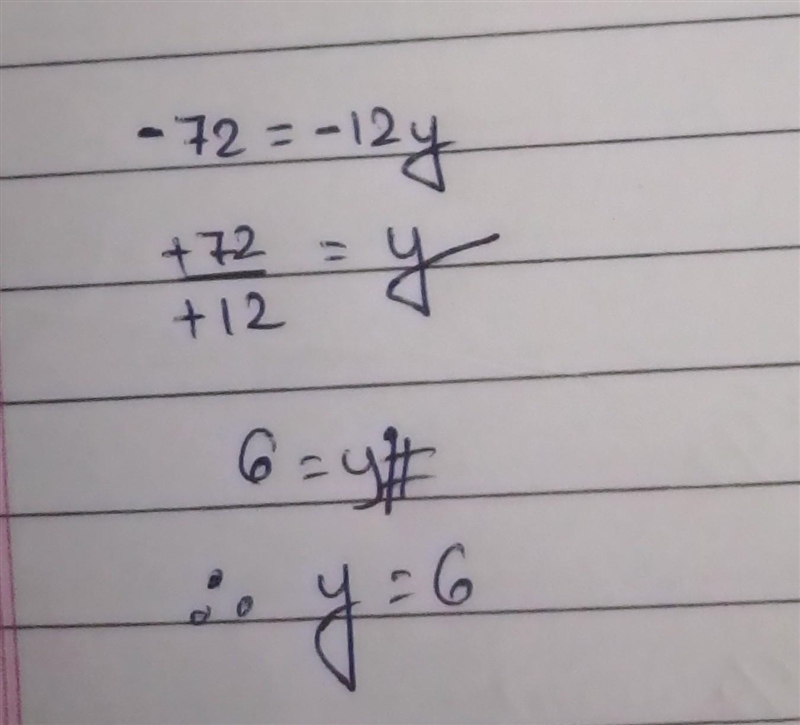 -72 = -12y
+72/+12 = y
6 = y#
∴ y = 6